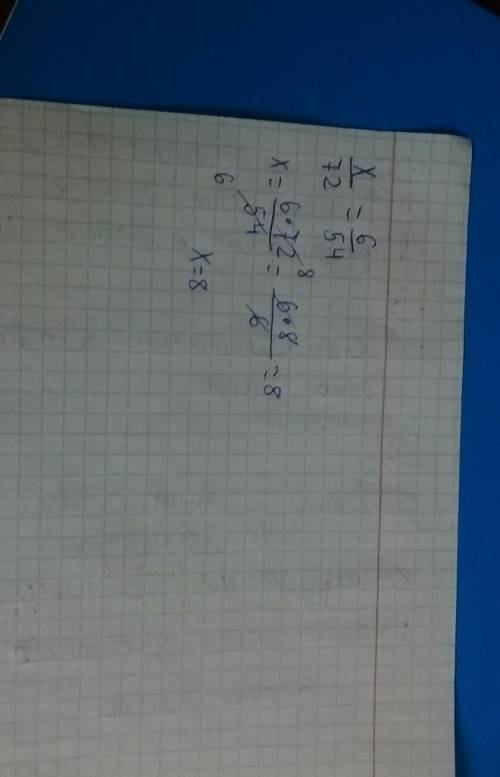 x/72 = 6/54
x = 6·72/54 = 6·8/6 = 8
8
6
x=8